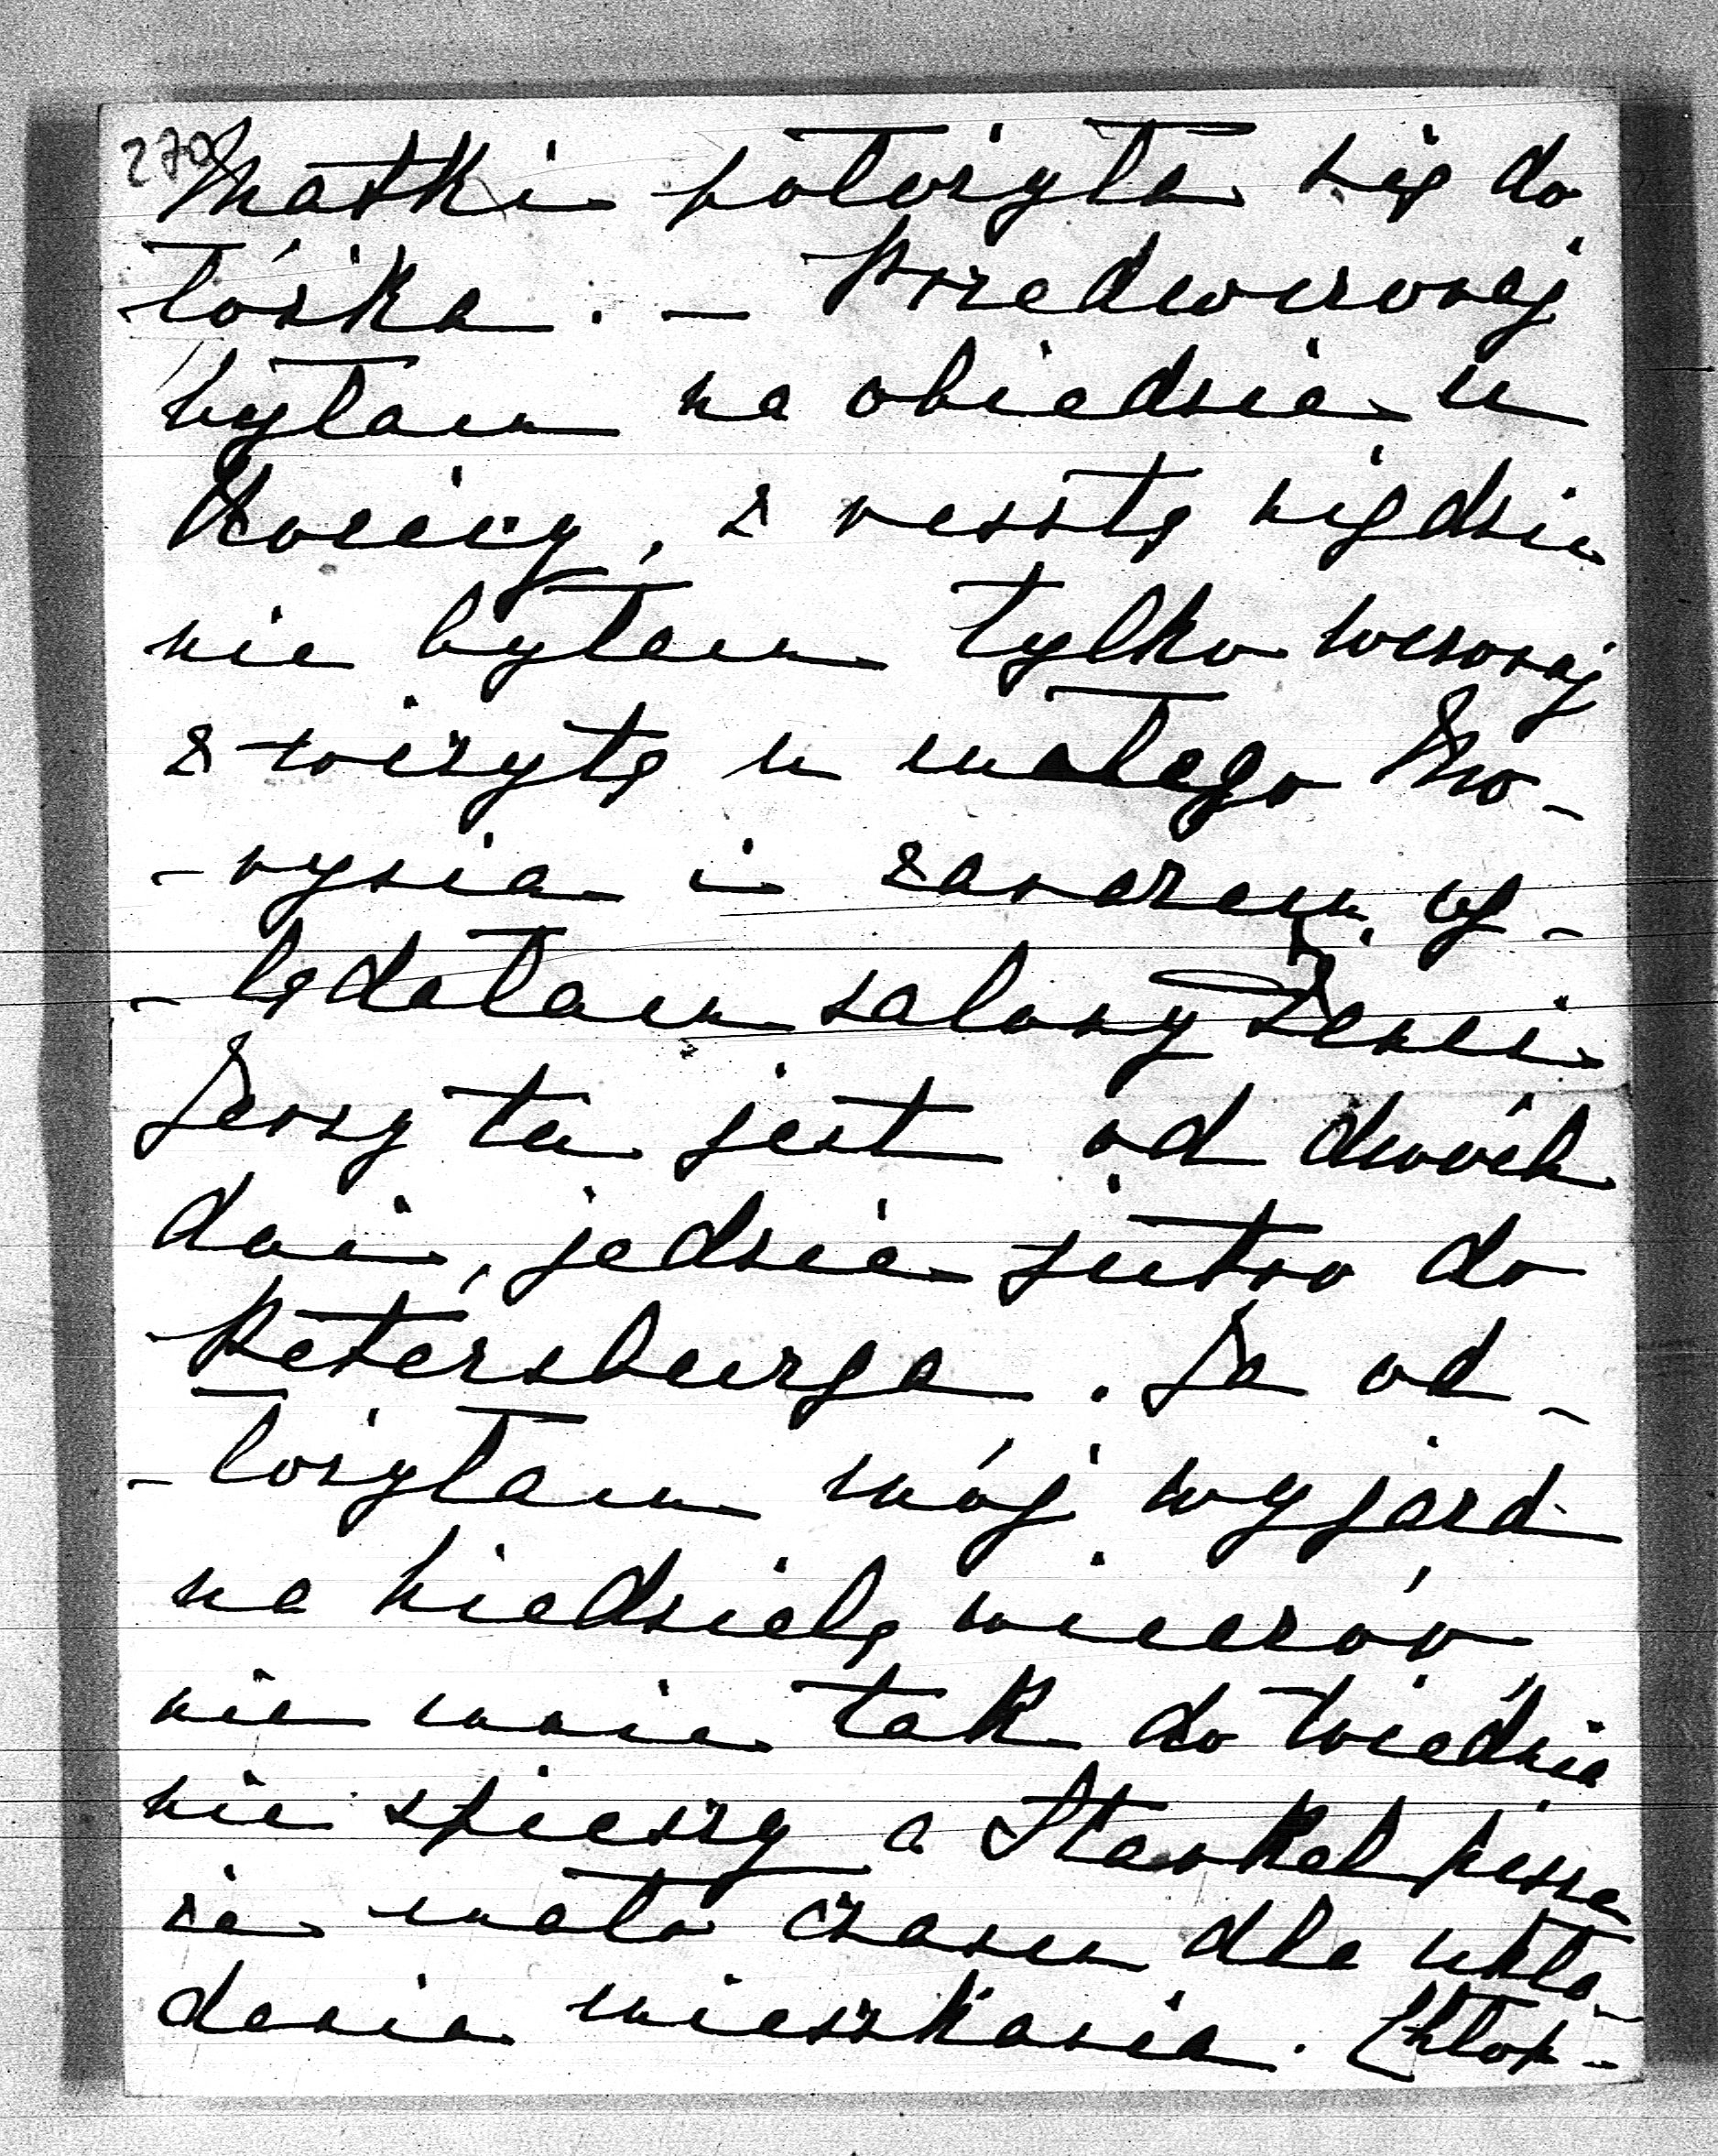 270
Matki położyła się do
łóżka. — Przedwczoraj
byłam na obiedzie u
z resztą nigdzie
nie byłam tylko wczoraj
z wizytą u małego Mo-
-rysia i zarazem og-
-lędałam salony Reni
Jerzy tu jest od dwóch
dni, jedzie jutro do
Petersburga. Ja od-
-łożyłam mój wyjazd
na niedzielę wieczór,
nie mnie tak do Wiednia
nie spieszy a Frankel pisze
że mało czasu dla ukła-
dania mieszkania. Chłop-